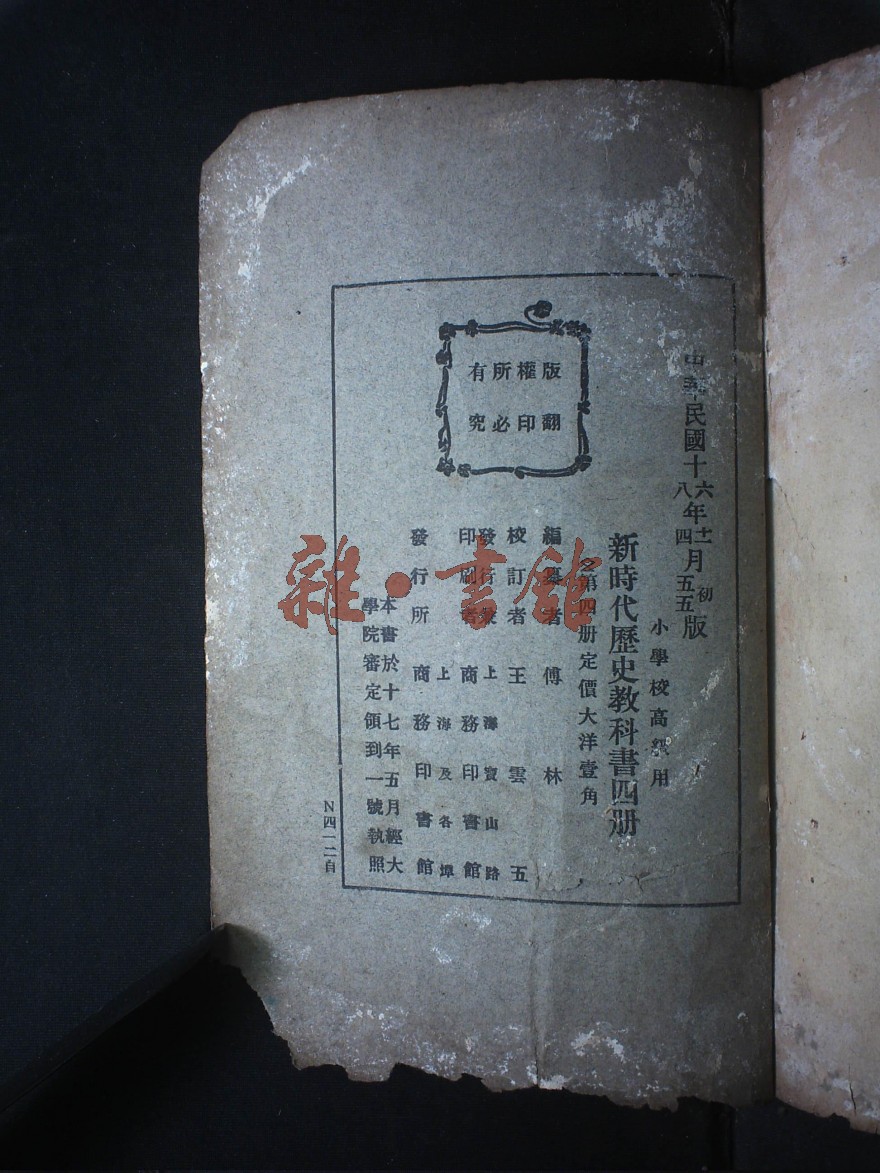 中華民國十六年十二月初版
八四五五
小學校高級用
新時代歷史教科書四册
第四册定價大洋壹角
版權所有
翻印必究
編纂者 傅林
校訂者 王雲五
發行兼印刷者 上海寶山路 商務印書館
發行所 上海及各埠 商務印書館
本書於十七年五月經大
學院審定領到一號執照
N四一二自
雜·書館